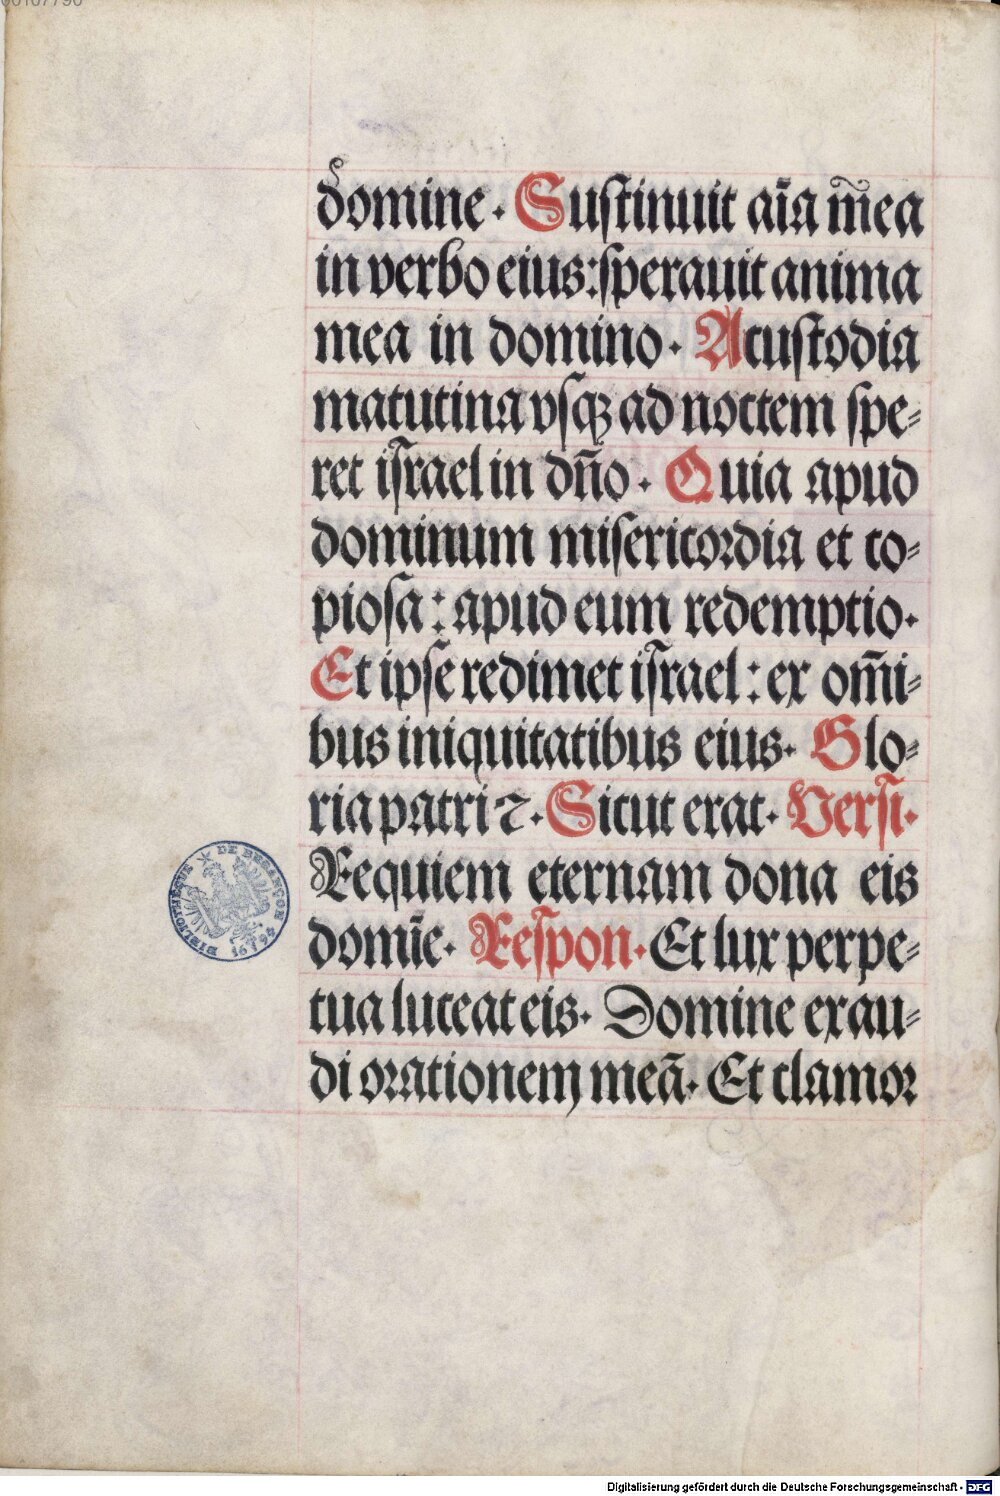 00107790
domine. Sustinuit aīa m̄ea
in verbo eius: sperauit anima
mea in domino. A custodia
matutina vsqꝫ ad noctem spe⸗
ret iſrael in dn̄o. Quia apud
dominum miſericordia et co⸗
pioſa: apud eum redemptio.
Et ipſe redimet iſrael: ex om̄i⸗
bus iniquitatibus eius. Glo⸗
ria patri ⁊. Sicut erat. Verſi.
Requiem eternam dona eis
domīe. Reſpon. Et lux perpe⸗
tua luceat eis. Domine exau⸗
di orationem meā. Et clamor
BIBLIOTHEQUE DE BESANÇON
1694
Digitalisierung gefördert durch die Deutsche Forschungsgemeinschaft - DFG